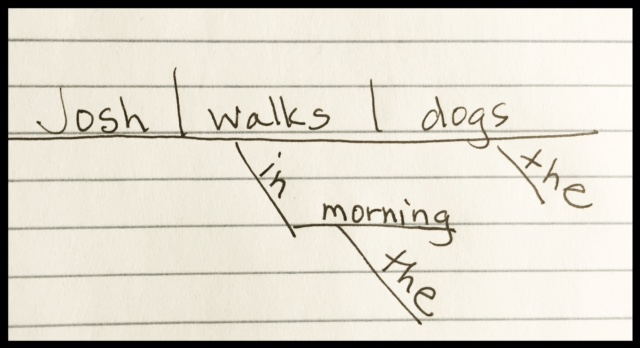 Josh walks dogs
in
the
morning
the